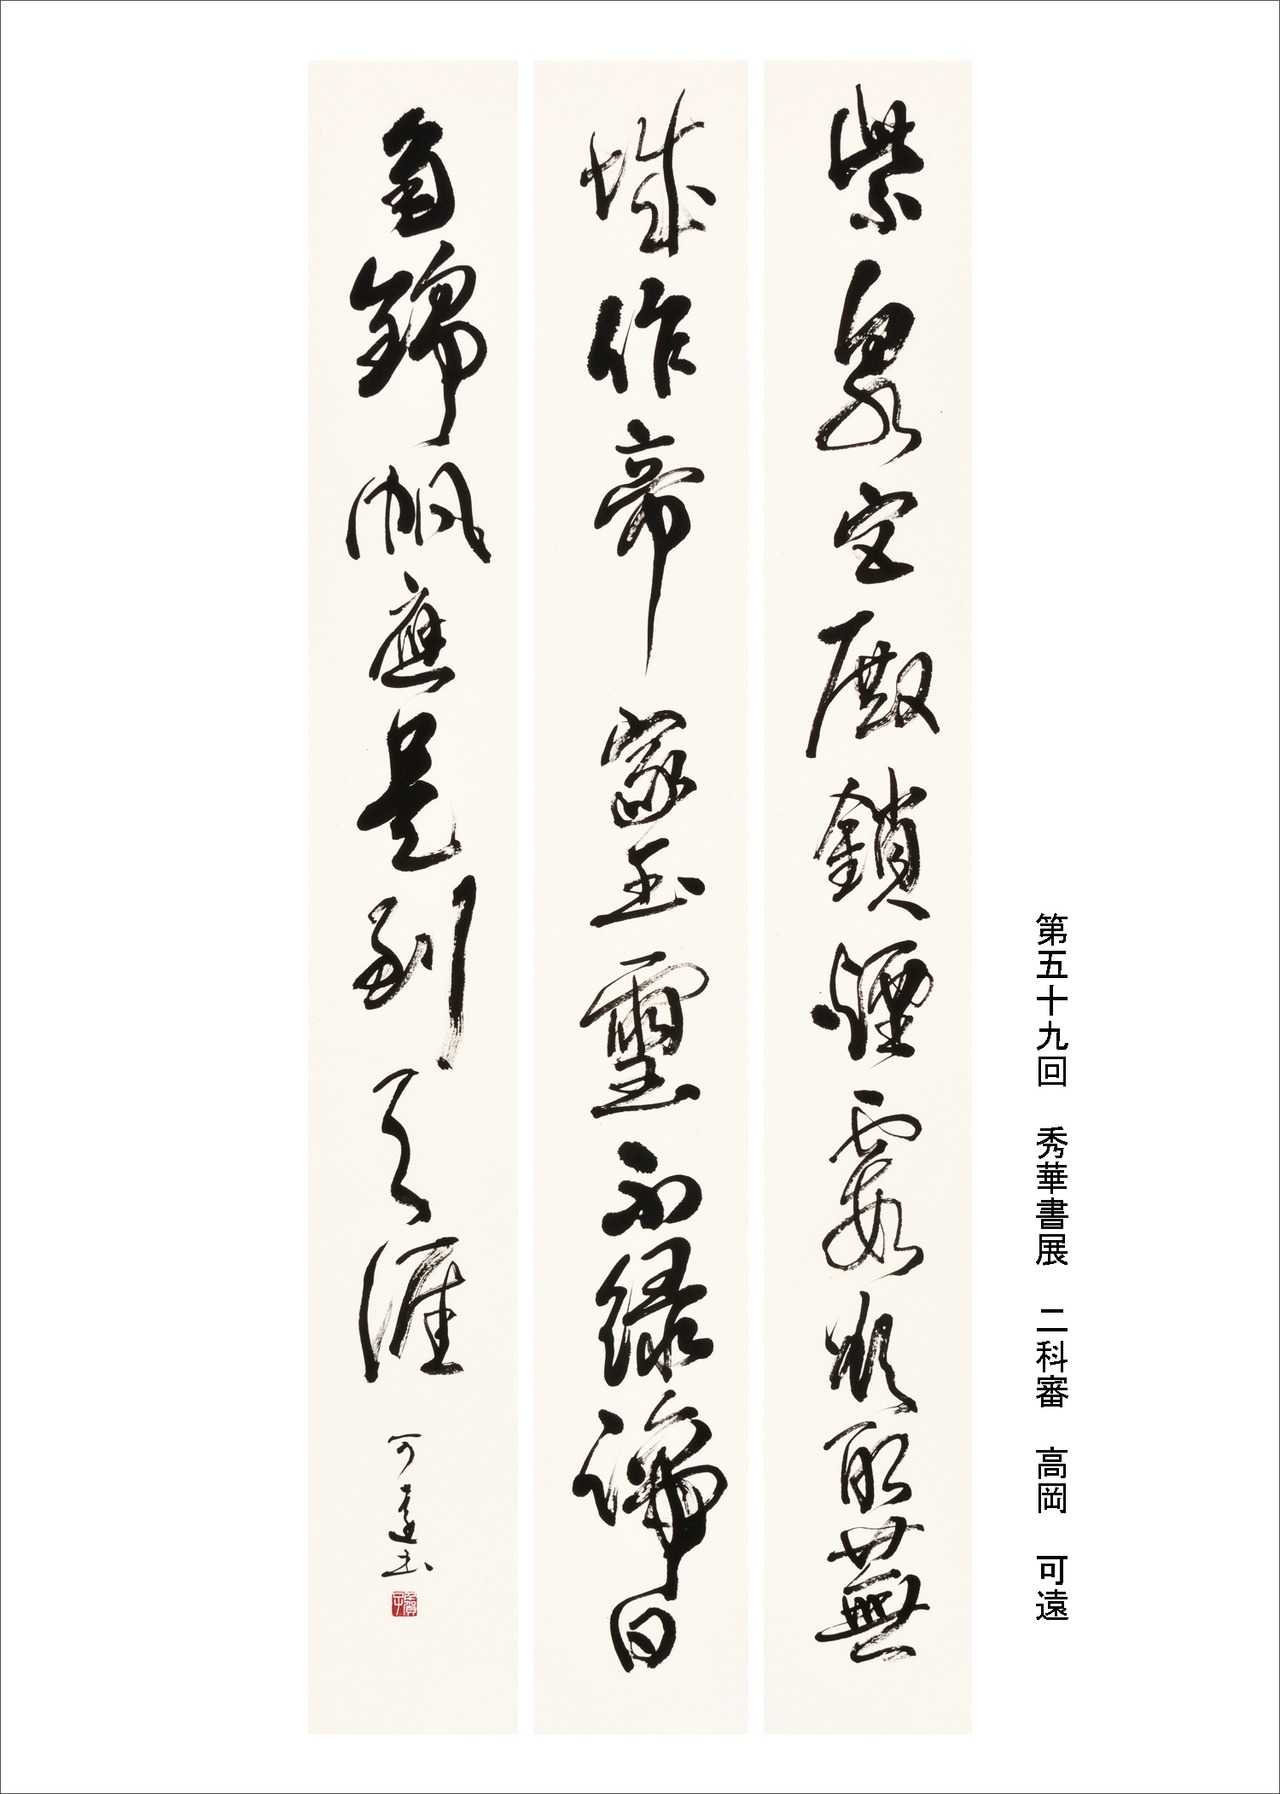 第五十九回　秀華書展　二科審　高岡　可遠
紫泉宮殿鎖煙霞欲取蕪
城作帝家玉璽不緣歸日
角錦帆應是到天涯
可遠書